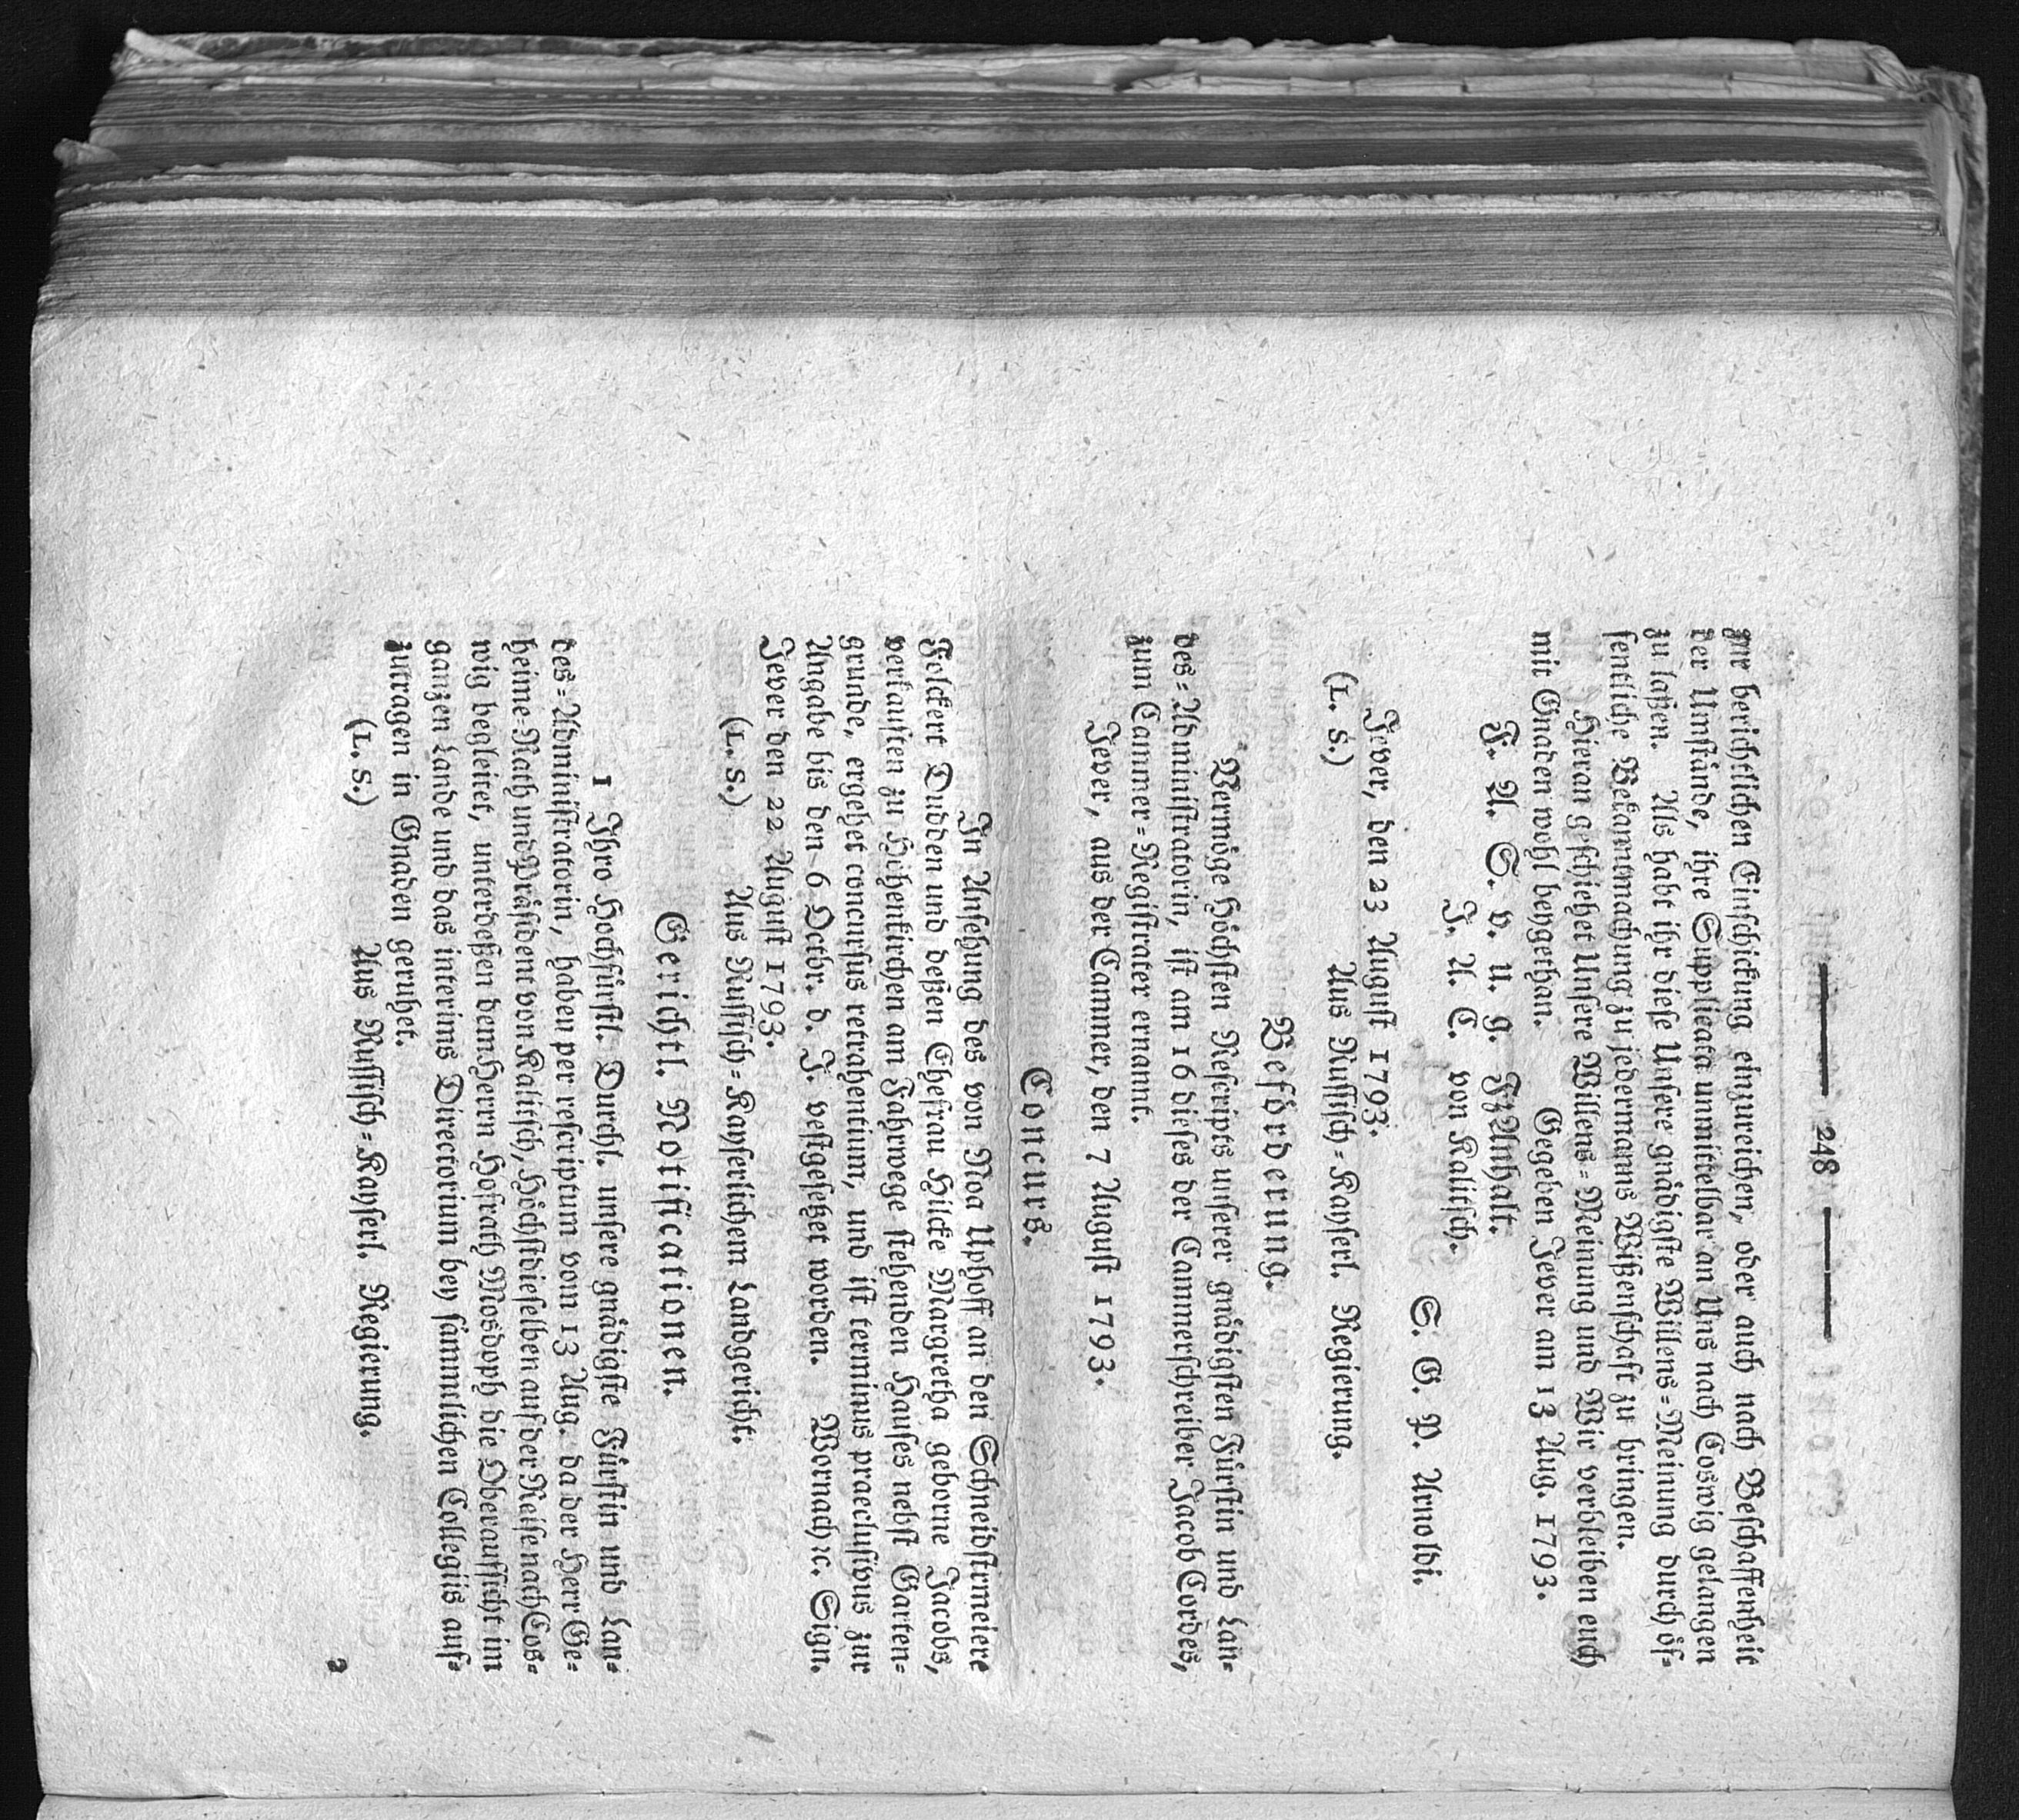 — 248 —
zur berichtlichen Einschickung einzureichen, oder auch nach Beschaffenheit
der Umstände, ihre Supplicata unmittelbar an Uns nach Coswig gelangen
zu laßen. Als habt ihr diese Unsere gnädigste Willens=Meinung durch öf=
fentliche Bekanntmachung zu jedermanns Wißenschaft zu bringen.
Hieran geschiehet Unsere Willens=Meinung und Wir verbleiben euch
mit Gnaden wohl beygethan. Gegeben Jever am 13 Aug. 1793.
F. A. S. v. u. g. F. z. Anhalt.
F. A. C. von Kalitsch.
S. G. P. Arnoldi.
Jever, den 23 August 1793.
(L. S.) Aus Russisch=Kayserl. Regierung.
Beförderung.
Vermöge Höchsten Rescripts unserer gnädigsten Fürstin und Lan=
des=Administratorin, ist am 16 dieses der Cammerschreiber Jacob Cordes,
zum Cammer=Registrater ernannt.
Jever, aus der Cammer, den 7 August 1793.
Concurs.
In Ansehung des von Noa Uphoff an den Schneidstrmeiere
Folckert Dudden und deßen Ehefrau Hilcke Margretha geborne Jacobs,
verkauften zu Hohenkirchen am Fahrwege stehenden Hauses nebst Garten=
grunde, ergehet concursus retrahentium, und ist terminus praeclusivus zur
Angabe bis den 6 Octbr. d. J. vestgesetzet worden. Wornach ꝛc. Sign.
Jever den 22 August 1793.
(L. S.) Aus Russisch=Kayserlichem Landgericht.
Gerichtl. Notificationen.
1 Ihro Hochfürstl. Durchl. unsere gnädigste Fürstin und Lan=
des=Administratorin, haben per rescriptum vom 13 Aug. da der Herr Ge=
heime=Rath und Präsident von Kalitsch, Höchstdieselben auf der Reise nach Cos=
wig begleitet, unterdeßen dem Herrn Hofrath Mosdoph die Oberaufsicht im
ganzen Lande und das interims Directorium bey sämmtlichen Collegiis auf=
zutragen in Gnaden geruhet.
(L. S.) Aus Russisch=Kayserl. Regierung.
2